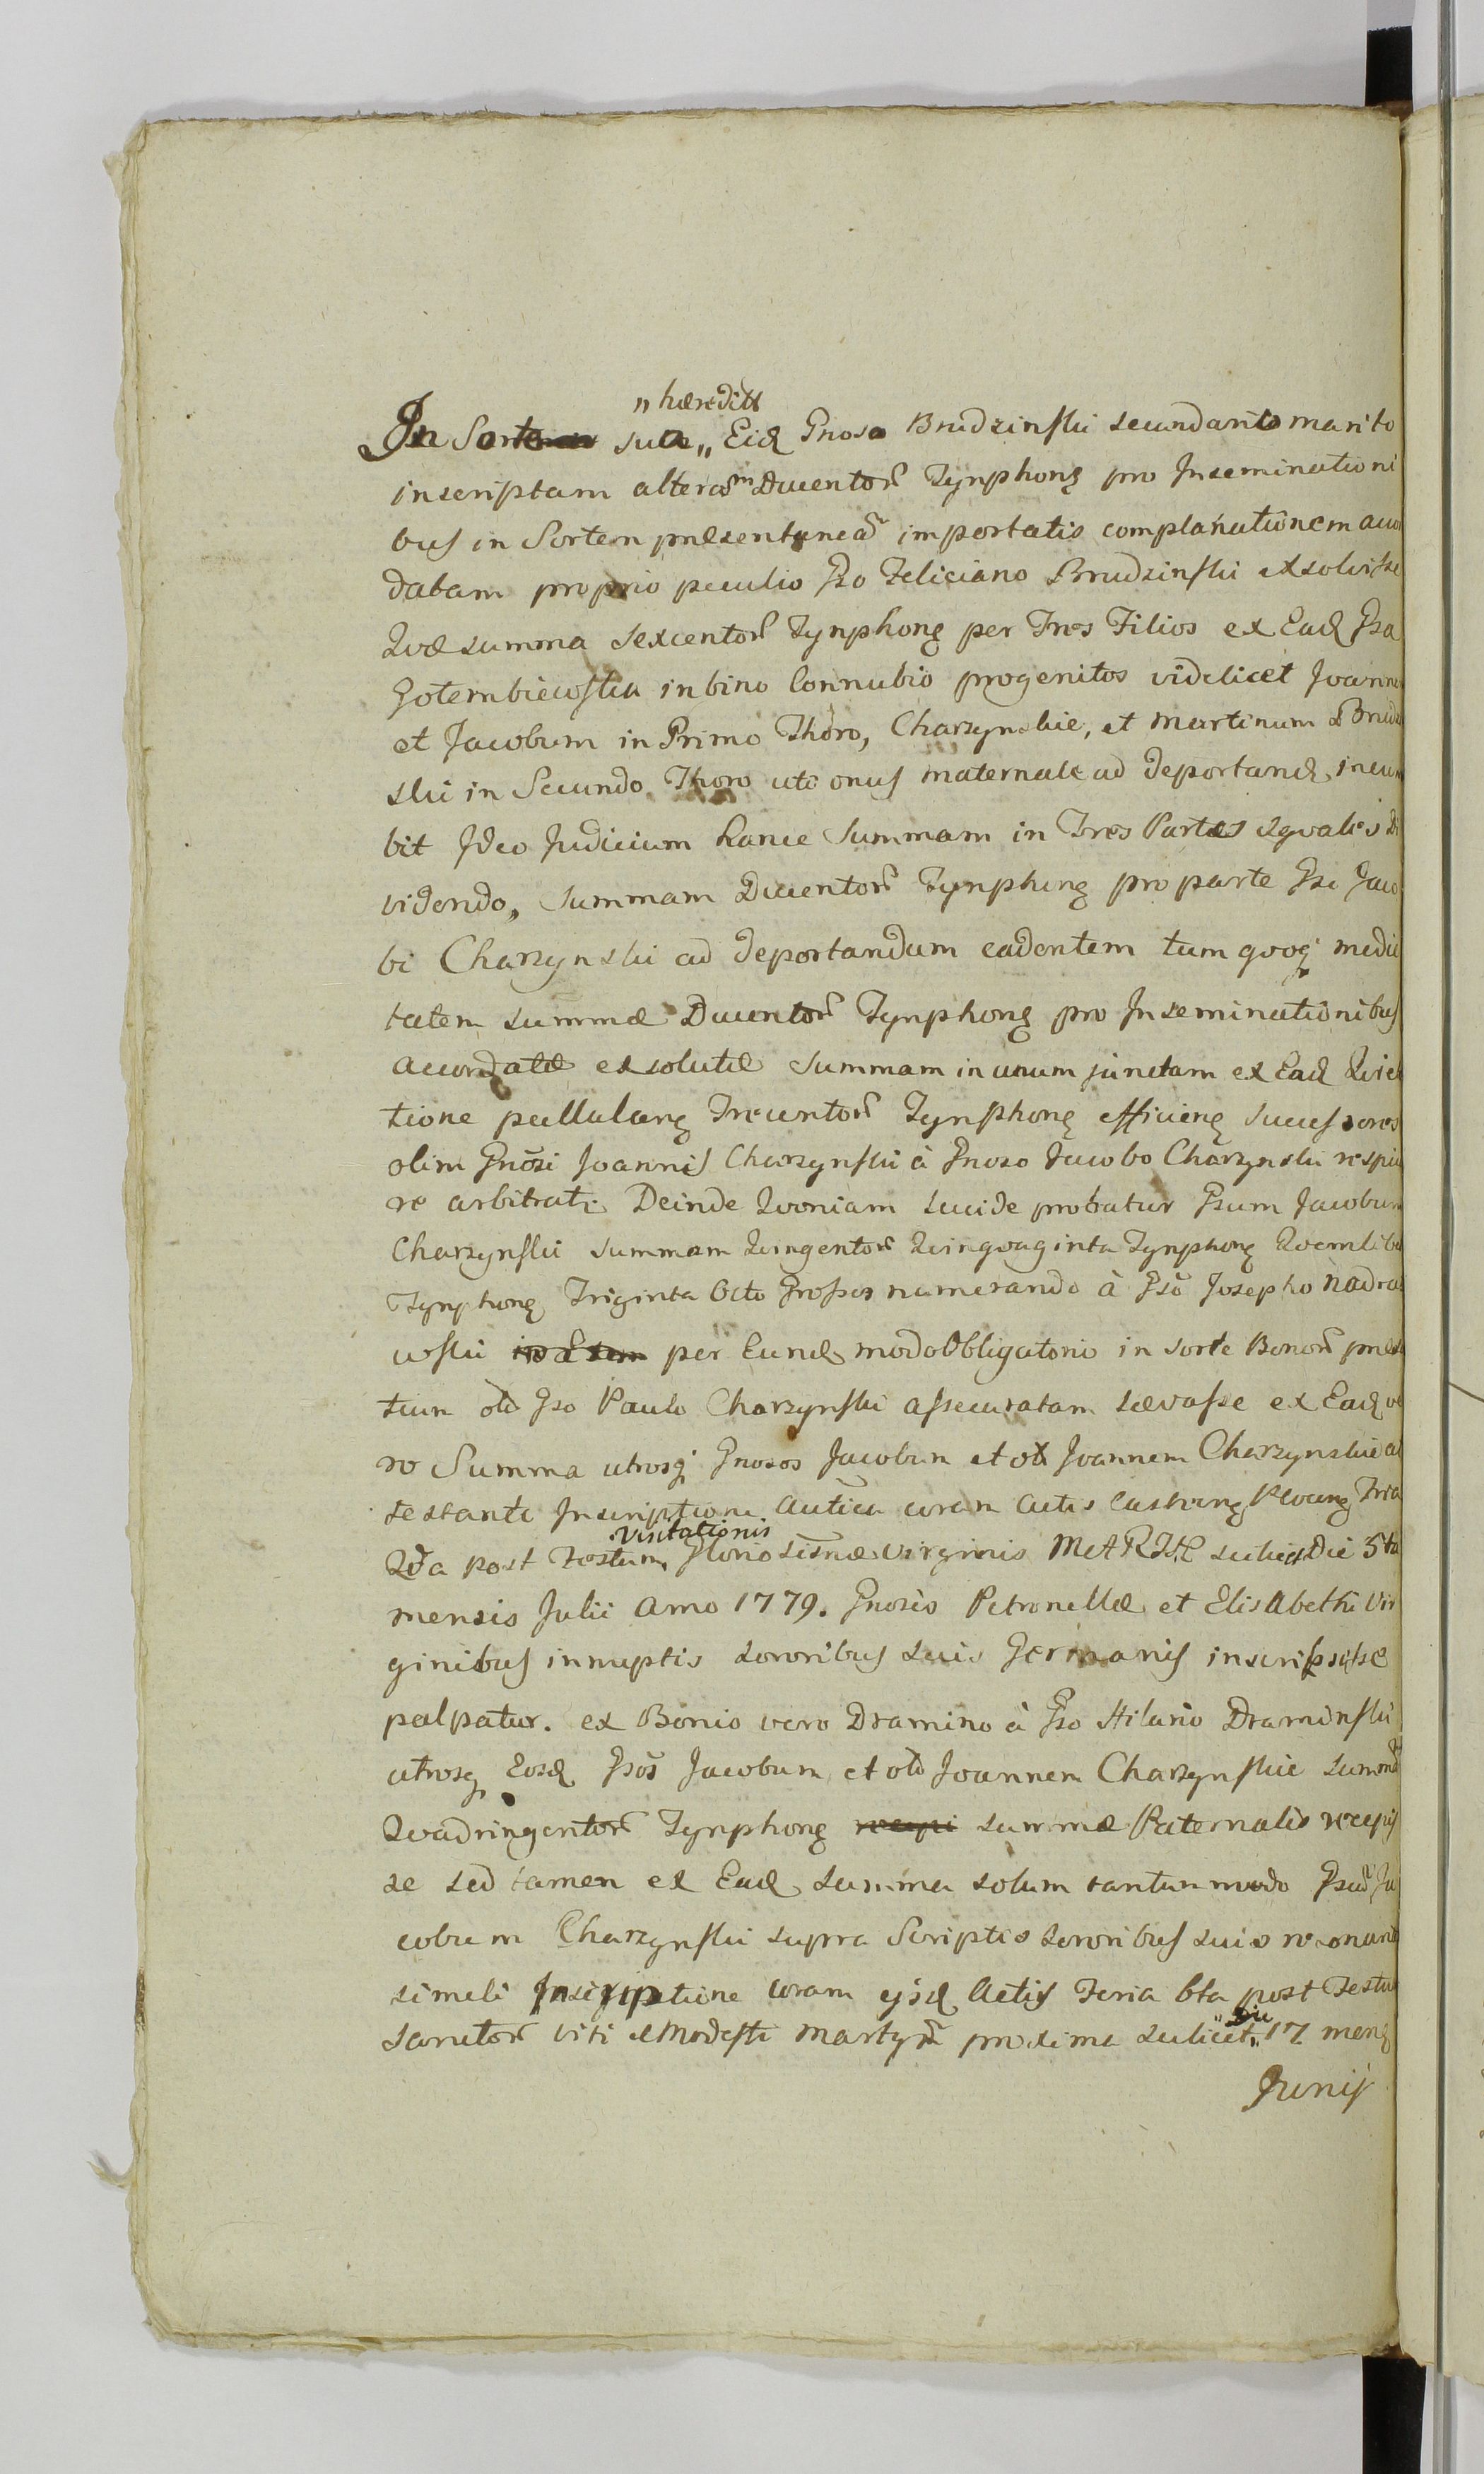 „hæreditt
In Sorte sua„ Eid Gnoso Brudzinski secundario marito
inscriptam alteram Ducentor Tynphong pro Inseminationi
bus in Sortem præsentanea importatis complanationem accor
datam proprio peculio Gso Feliciano Brudzinski exsolvisse
Qvæ summa sexcentor Tynphong per Tres Filios ex Ead Gsa
Gotembiewska in bino Connubio progenitos videlicet Joanne
et Jacobum in Primo Thoro, Charzynskie, et Martinum Brudz
ski in Secundo Thoro uti onus maternale ad deportand incum
bit Ideo Judicium hance Summam in Tres Partes æqvales di
videndo, summam Ducentor Tynphong pro parte Gsi Jaco
bi Charzynski ad deportandum cadentem tum qvoq medie
tatem summæ Ducentor Tynphong pro Inseminationibus
accordatæ exsolutæ summam in unum junctam ex Ead Qvie
tione pullulang Trecentor Tynphong efficieng Successores
olim Gnosi Joannis Charzynski à Gnoso Jacobo Charzynski respic
re arbitrati Deinde Qvoniam lucide probatur Gsum Jacobum
Charzynski summam Qvingentor Qvinqvaginta Tynphong Qvemlibe
Tynphong Triginta Octo Grossos numerando à Gso Josepho Nadra
wski per Eund modo Obligatorio in sorte Bonor præs
tium olo Gso Paulo Charzynski assecuratam levasse ex Ead ve
ro Summa utrosq Gnosos Jacobum et olo Joannem Charzynskie at
testante Inscriptione Autica coram Actis Castreng Kcoung Fria
Visitationis
2da post Festum Gloriosisnæ Virginis MARIÆ scilicet Die 5ta
mensis Julii Anno 1779. Gnosis Petronellæ et Elisabethi Vir
ginibus innuptis sororibus suis Germanis inscripsisse
palpatur. ex Bonis vero Dramino à Gso Hilario Draminski
utrosq Eosd Gsos Jacobum et olo Joannem Charzynskie summa
Qvadringentor Tynphong summæ Paternalis recepis
se sed tamen ex Ead summa solum tantummodo Gsum Ja
cobum Charzynski supra Scriptis sororibus suis resonante
simili Inscriptione coram ejsd Actis Feria 6ta post Festum
„Die
Sanctor Viti et Modesti Martyr proxima scilicet„ 17 meng
Junij